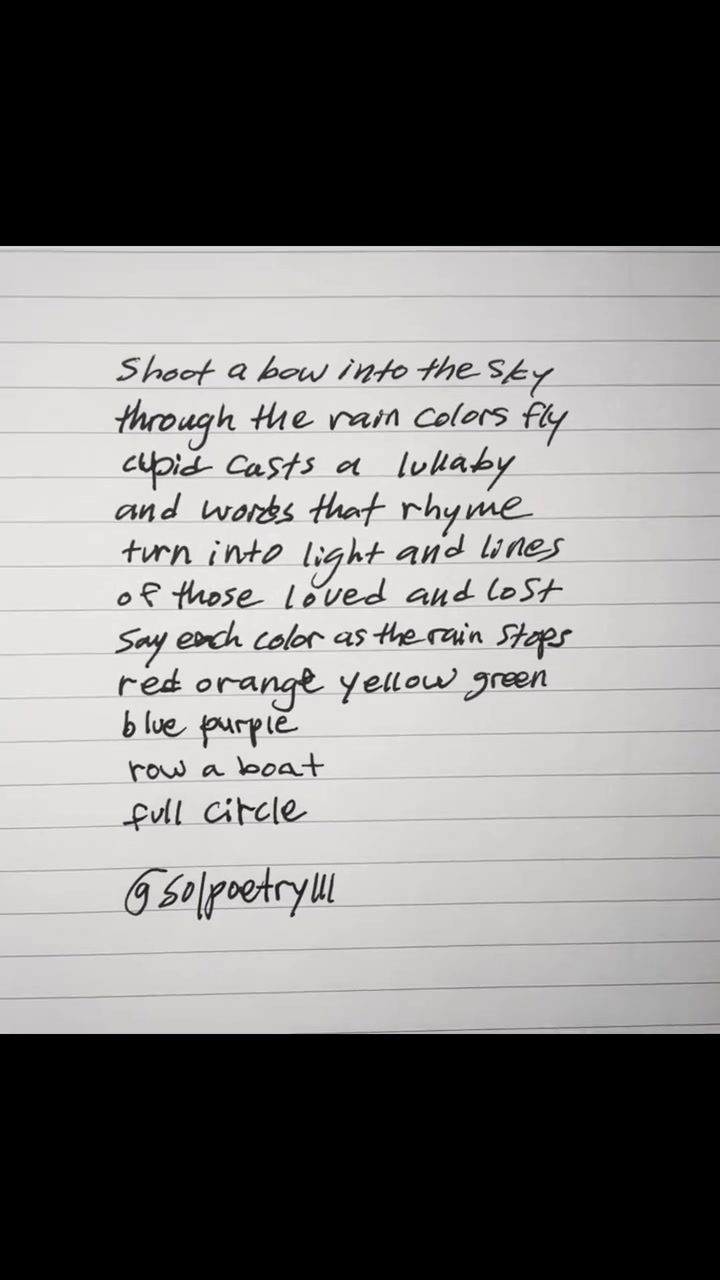 Shoot a bow into the sky
through the rain colors fly
cupid casts a lullaby
and words that rhyme
turn into light and lines
of those loved and lost
say each color as the rain stops
red orange yellow green
blue purple
row a boat
full circle
@solpoetrylll